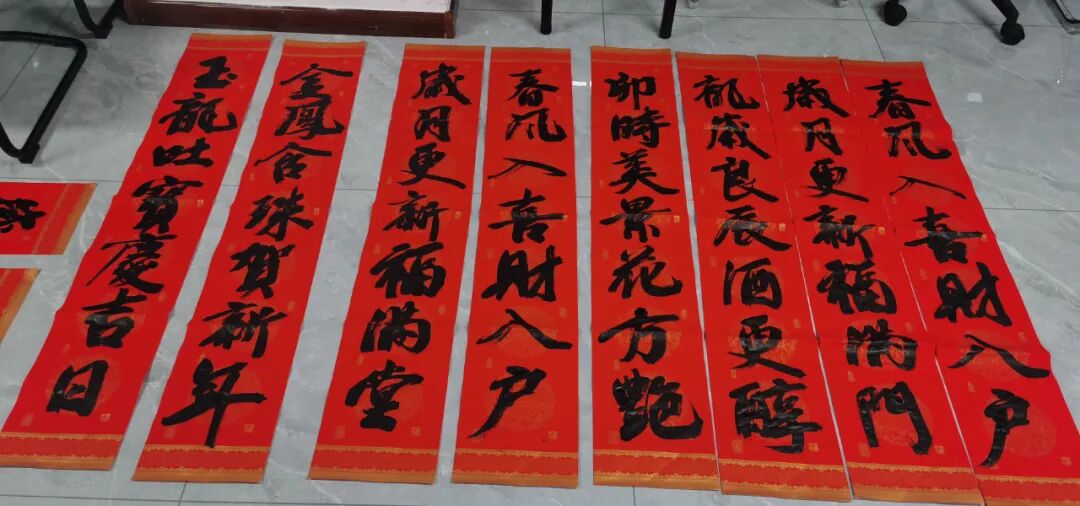 春风入喜財入户
歲月更新福滿門
龍歲良辰酒更醇
卯時美景花方艷
春风入喜財入户
歲月更新福滿堂
金鳳含珠賀新年
玉龍吐寶慶吉日